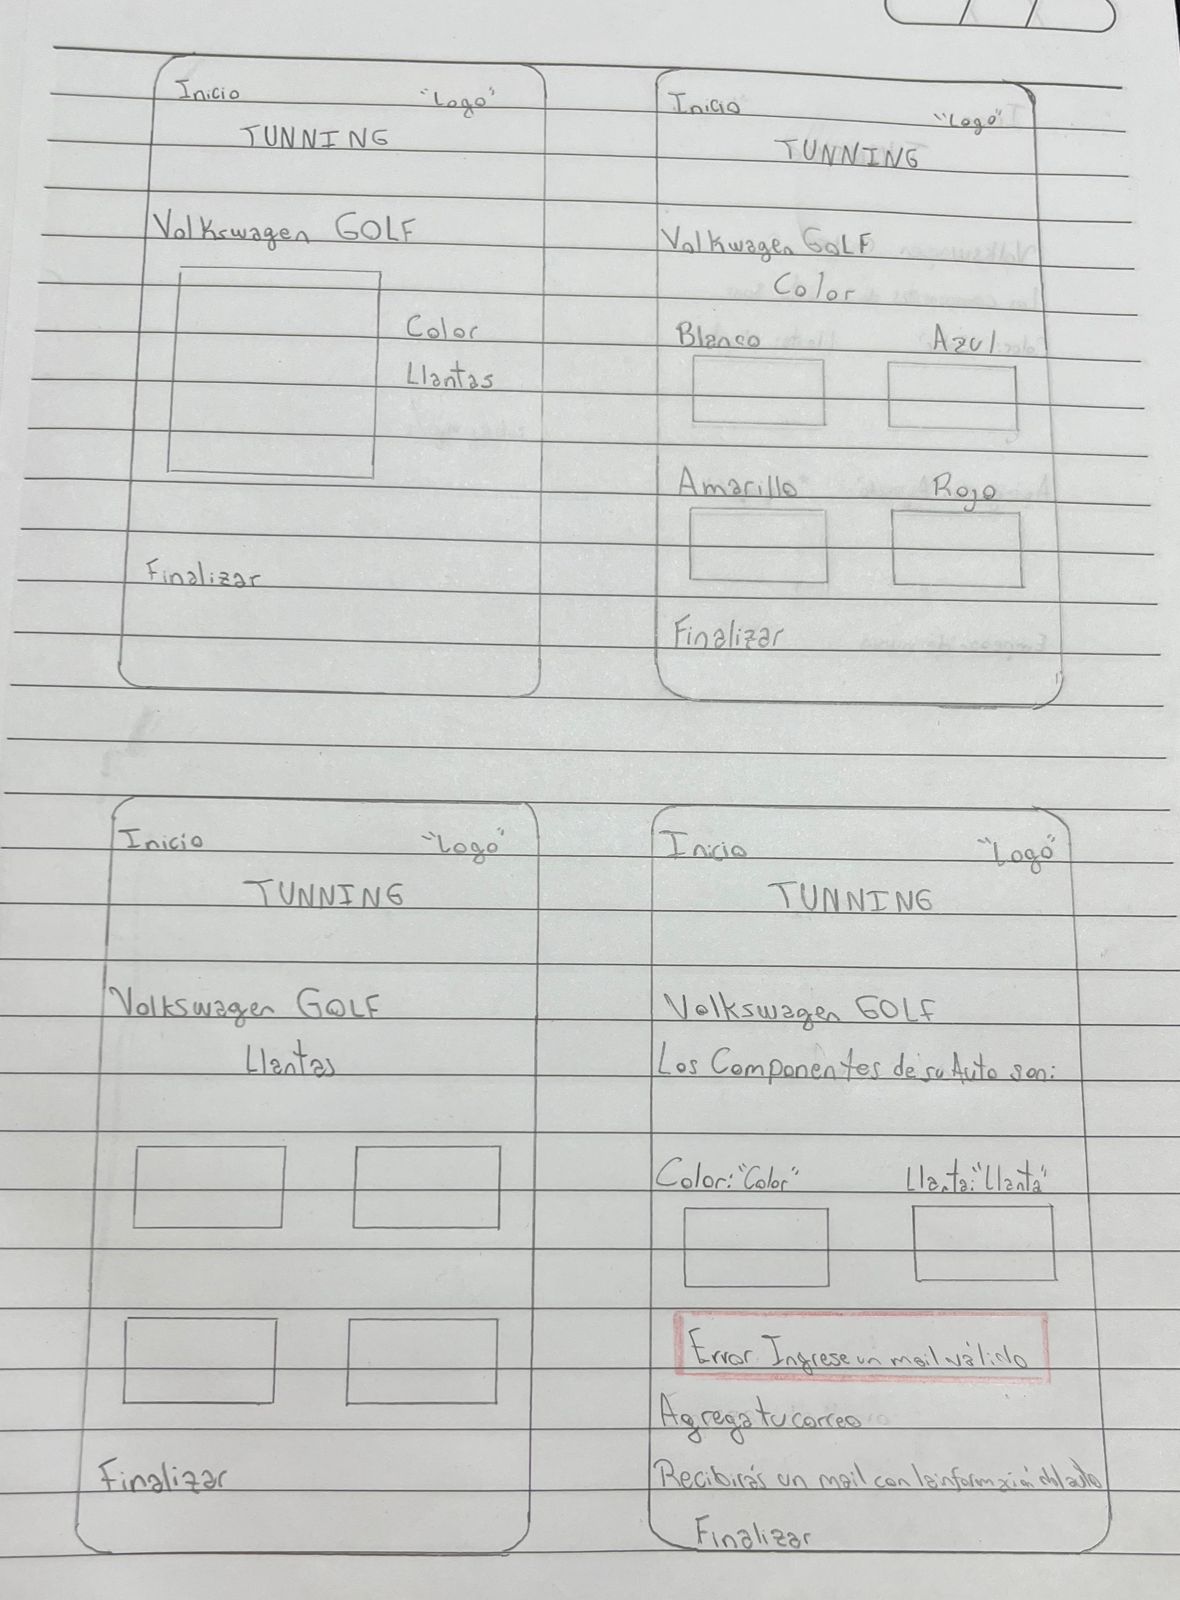 Inicio "Logo"
TUNNING
Volkswagen GOLF
Color
Llantas
Finalizar
Inicio "Logo"
TUNNING
Volkwagen GOLF
Color
Blanco Azul
Amarillo Rojo
Finalizar
Inicio "Logo"
TUNNING
Volkswagen GOLF
Llantas
Finalizar
Inicio "Logo"
TUNNING
Volkswagen GOLF
Los Componentes de su Auto son:
Color: "Color" Llanta: "Llanta"
Error. Ingrese un mail válido
Agrega tu correo
Recibirás un mail con la información del auto
Finalizar